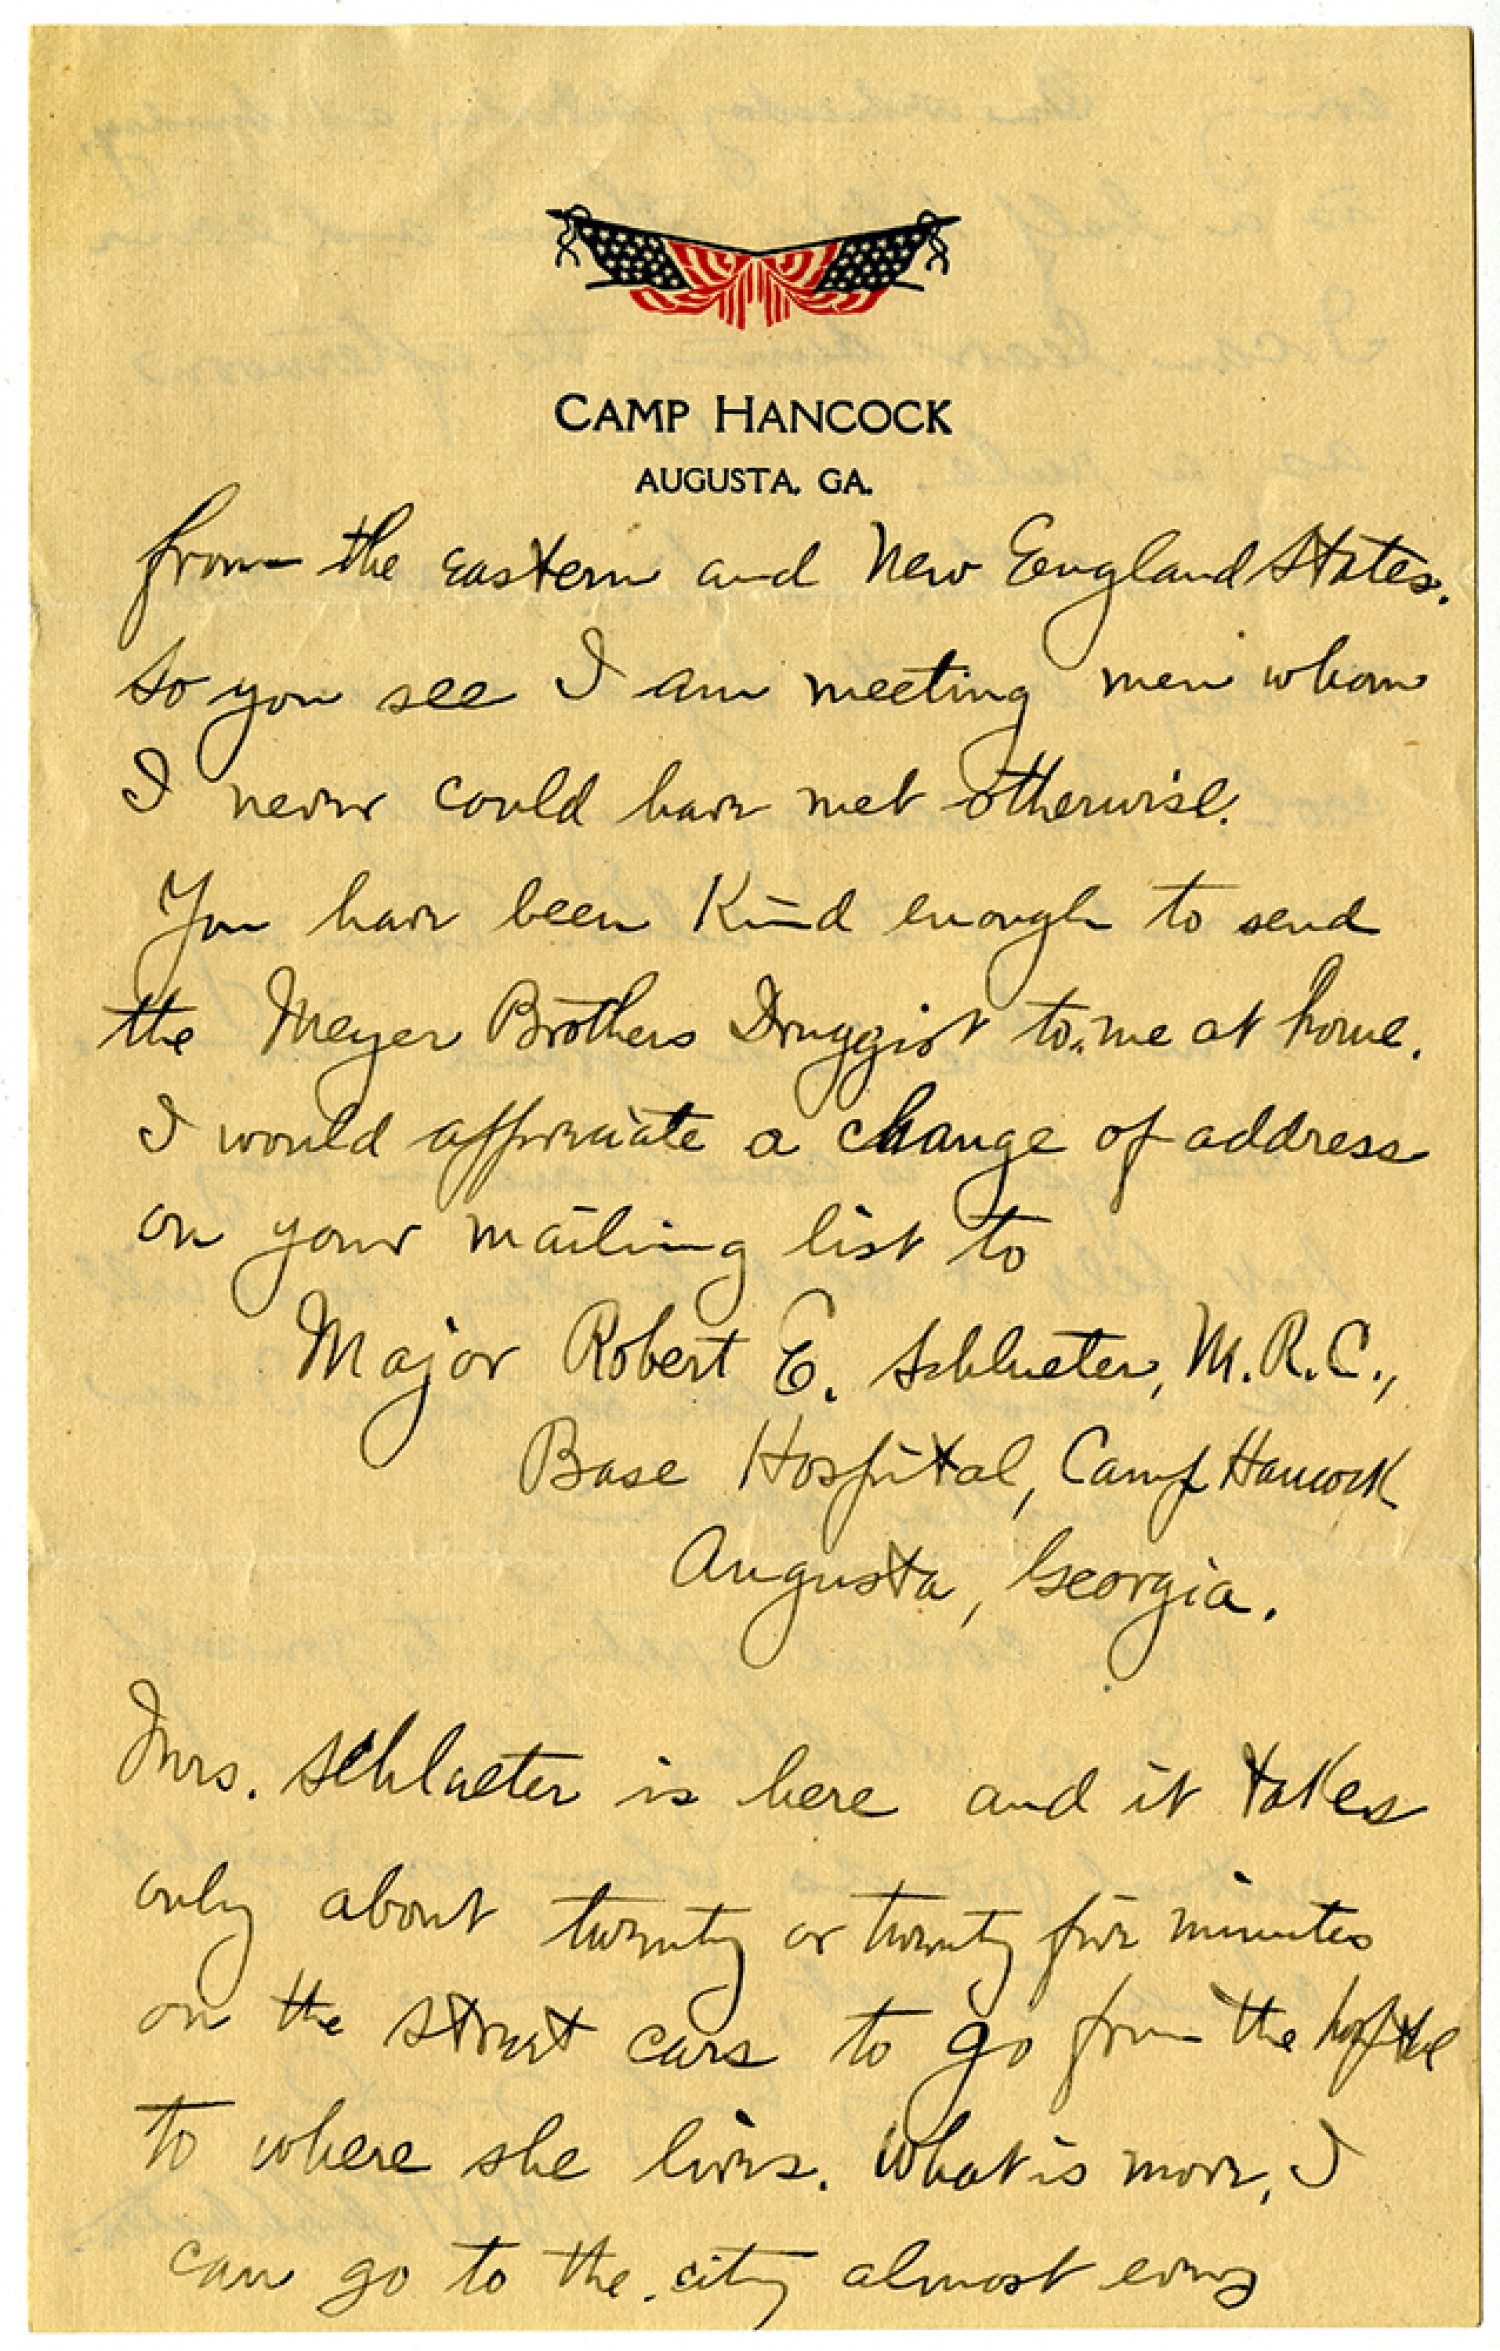 CAMP HANCOCK
AUGUSTA, GA.
from the eastern and New England States.
So you see I am meeting men whom
I never could have met otherwise.
You have been kind enough to send
the Meyer Brothers Druggist to me at home.
I would appreciate a change of address
on your mailing list to
Major Robert E. Schlueter, M.R.C.,
Base Hospital, Camp Hancock
Augusta, Georgia.
Mrs. Schlueter is here and it takes
only about twenty or twenty five minutes
on the street cars to go from the hospital
to where she lives. What is more, I
can go to the city almost every